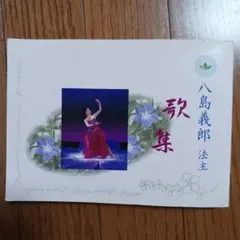 八島義郎 法主
歌集